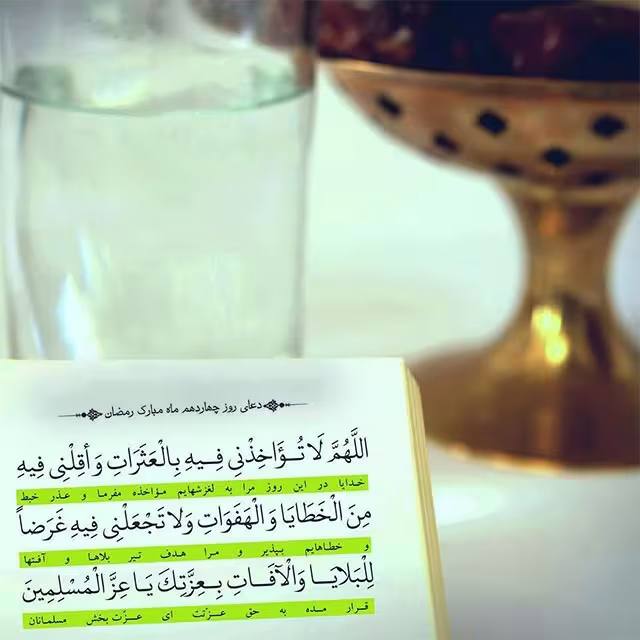 دعای روز چهاردهم ماه مبارک رمضان
اللَّهُمَّ لَا تُؤَاخِذْنِی فِیهِ بِالْعَثَرَاتِ وَ أَقِلْنِی فِیهِ
خدایا در این روز مرا به لغزشهایم مؤاخذه مفرما و عذر خبط
مِنَ الْخَطَایَا وَ الْهَفَوَاتِ وَ لَا تَجْعَلْنِی فِیهِ غَرَضاً
و خطاهایم بپذیر و مرا هدف تیر بلاها و آفتها
لِلْبَلَایَا وَ الْآفَاتِ بِعِزَّتِكَ یَا عِزَّ الْمُسْلِمِینَ
قرار مده به حق عزتت ای عزت بخش مسلمانان